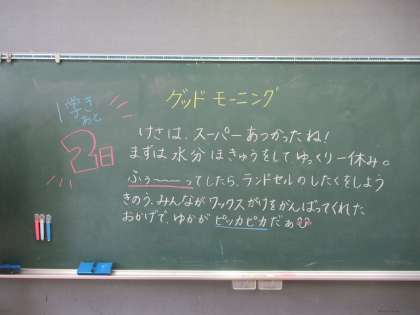 グッド モーニング
1学き
あと
2日
けさは、スーパーあつかったね!
まずは水分ほきゅうをしてゆっくり一休み。
ふぅ〜〜〜ってしたら、ランドセルのしたくをしよう
きのう、みんながワックスがけをがんばってくれた
おかげで、ゆかがピッカピカだぁ